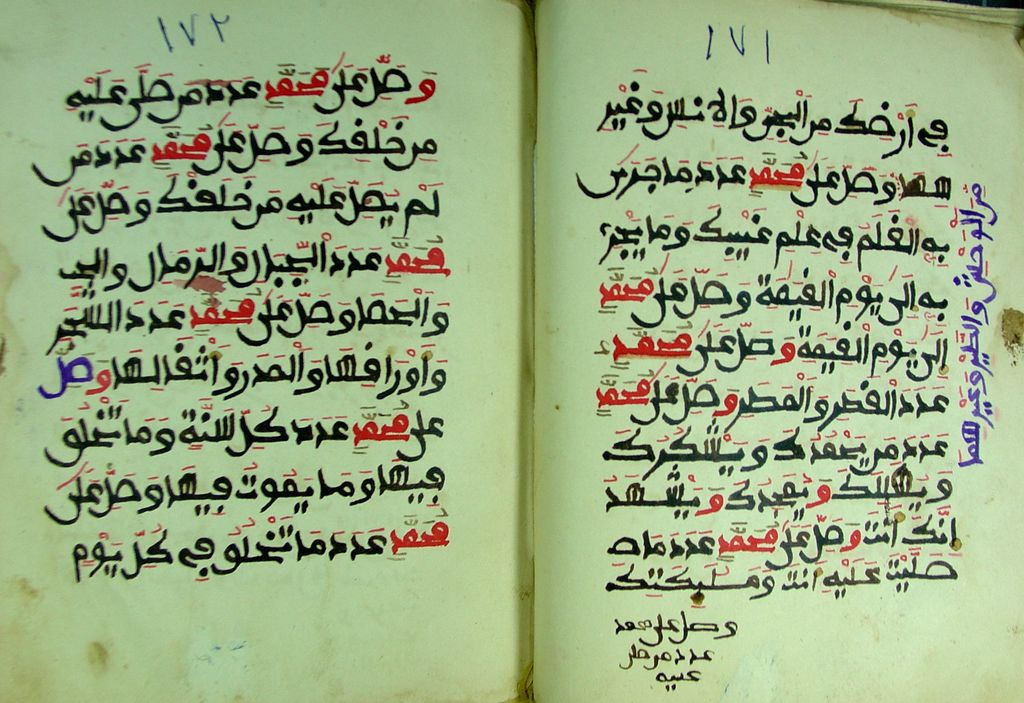 ١٧١
في أرضك من الجن والانس وغير
هما وصل على محمد عدد ما جرى
به القلم في علم غيبك وما يجري
به الى يوم القيمة وصل على محمد
الى يوم القيمة وصل على محمد
عدد القطر والمطر وصل على محمد
عدد من يحمدك ويشكرك
ويهللك ويمجدك ويشهد
انك انت وصل على محمد عدد ما ص
صليت عليه انت وملىكتك
وصل على محمد
عدد من صلى
عليه
من الوحش والطير وغيرهما
١٧٢
وصل على محمد عدد من صلى عليه
من خلفك وصل على محمد عدد من
لم يصل عليه من خلفك وصل على
محمد عدد الجبال والرمال والجب
والحصا وصل على محمد عدد الشجر
واوراقها والمدر واثقالها وصل
على محمد عدد كل سنة وما تخلق
فيها وما يموت فيها وصل على
محمد عدد ما تخلق في كل يوم